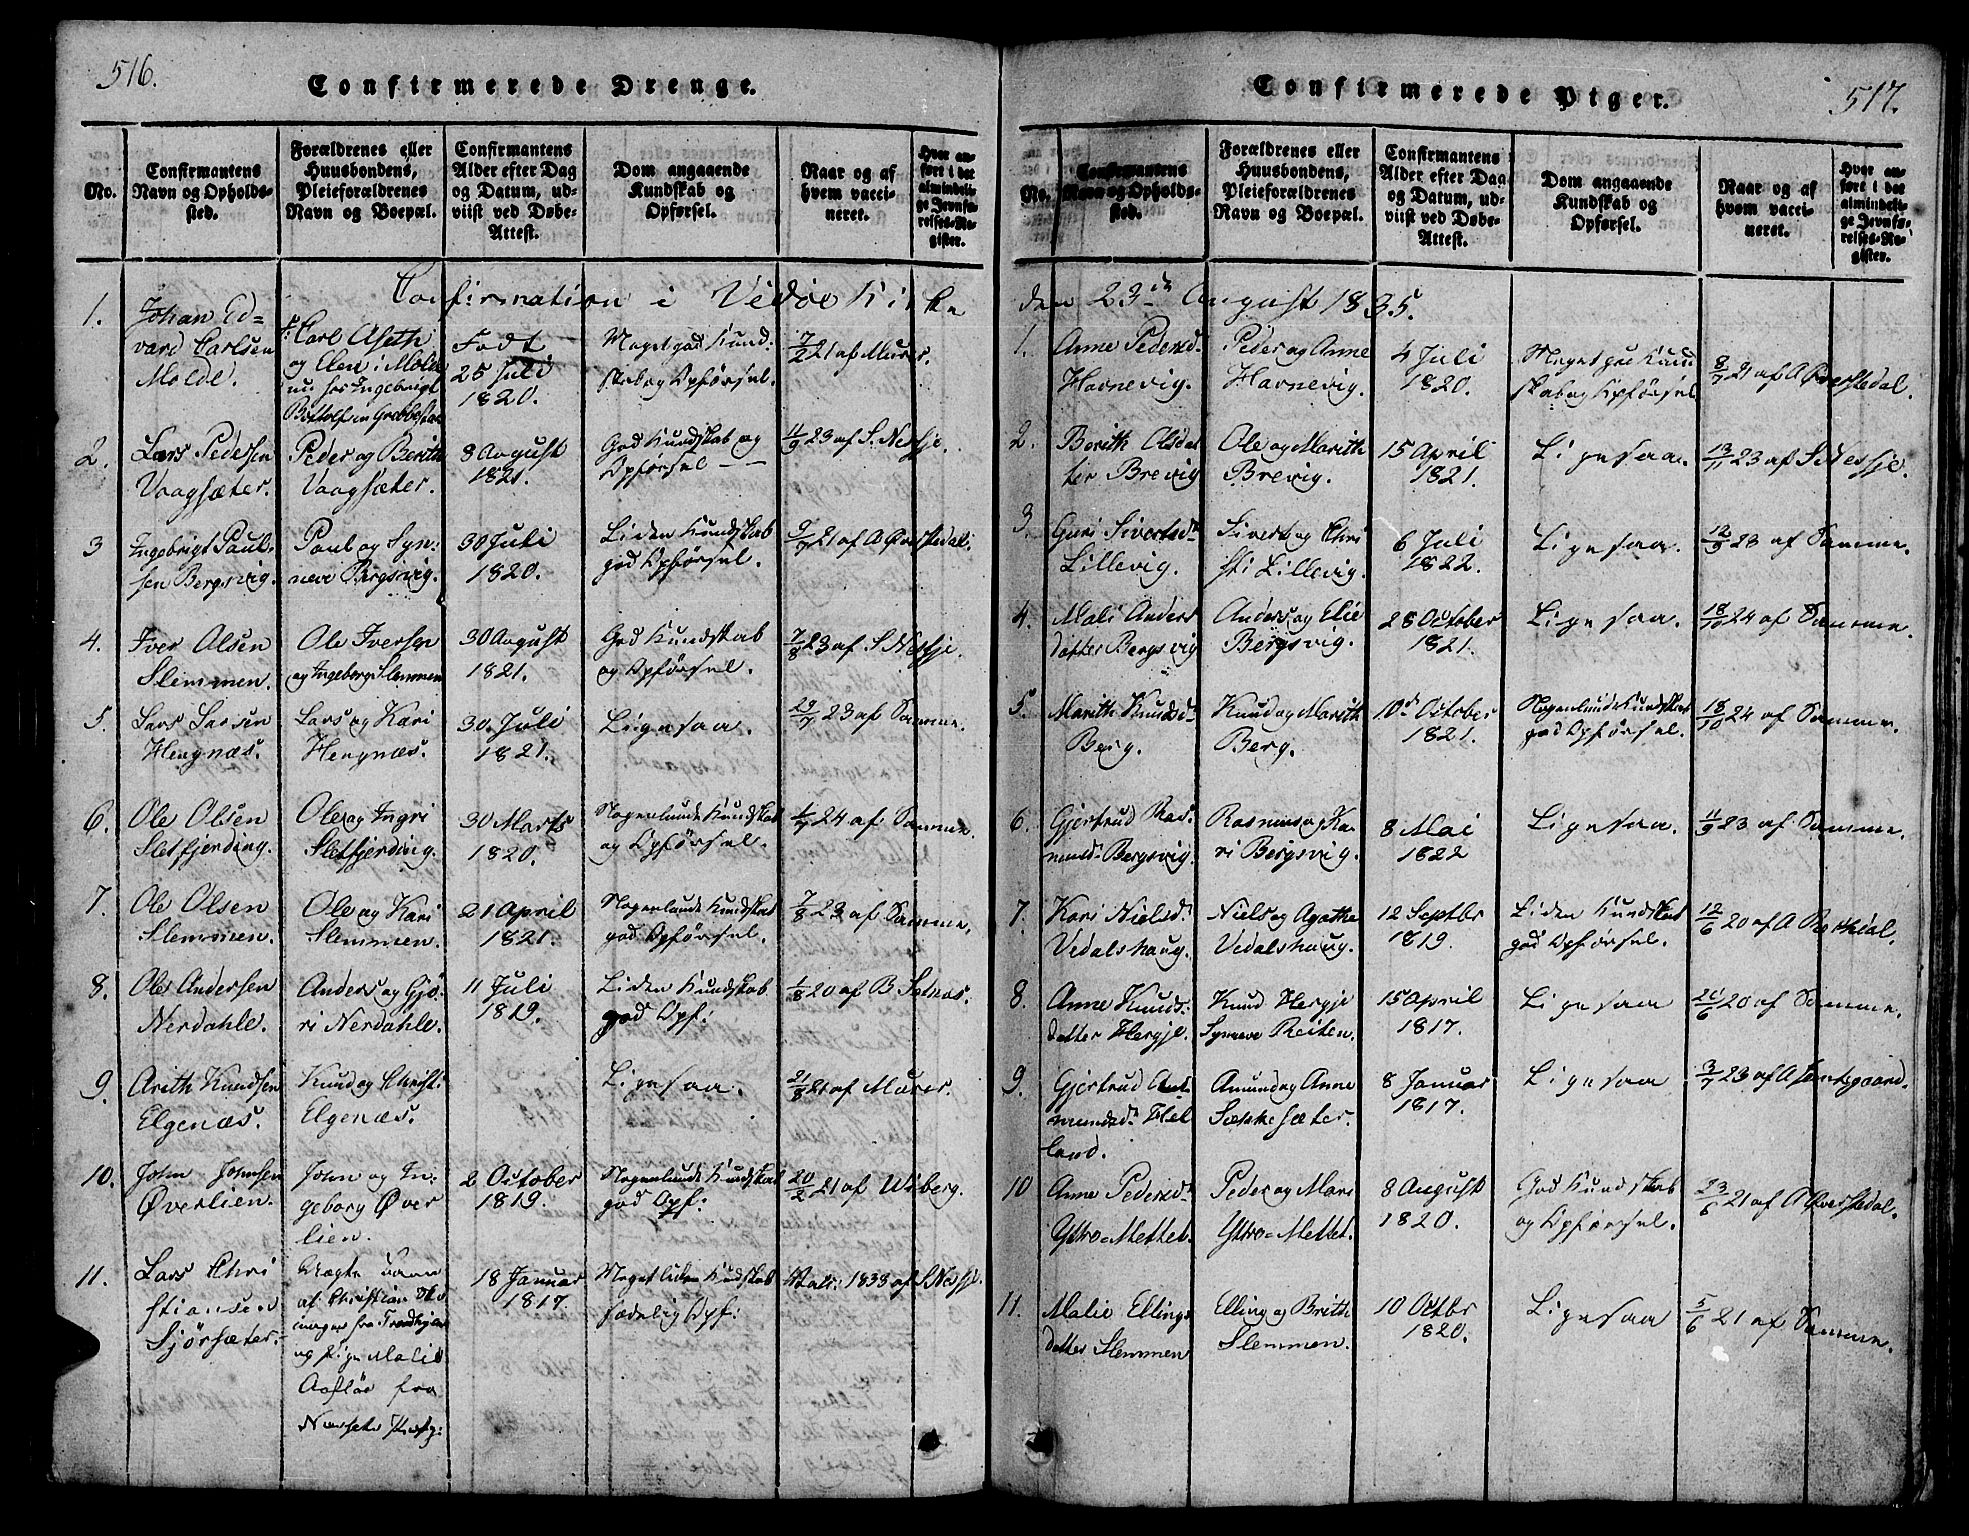 516.
Confirmerede Drenge.
No.
Confirmantens
Navn og Opholds-
sted.
Forældrenes eller
Huusbondens,
Pleieforældrenes
Navn og Boepæl.
Confirmantens
Alder efter Dag
og Datum, ud-
viist ved Døbe-
Attest.
Dom angaaende
Kundskab og
Opførsel.
Naar og af
hvem vacci-
neret.
Hvor an-
ført i det
almindeli-
ge Jevnfø-
relses-Re-
gister.
Confirmation i Vedøe Kirke
1.
Johan Ed=
vard Carlsen
Molde.
Carl Aseth
og Elen i Molde
nu hos Ingebrigt
Født
25 Juli
1820.
Meget god Kund:
skab og Opførsel.
7/2 21 af Murer.
2.
Lars Pedersen
Vaagsæter.
Peder og Berith
Vaagsæter.
8 August
1821.
God Kundskab og
Opførsel —
11/9 23 af S. Nessje.
3
Ingebrigt Paul:
sen Bergsvig.
Paul og Syn:
neve Bergsvig.
30 Juli
1820.
Liden Kundskab
god Opførsel.
9/7 21 af A Øverstedal.
4.
Iver Olsen
Slemmen.
Ole Iversen
og Ingeborg Slemmen
30 August
1821.
God Kundskab
og Opførsel.
7/8 23 af S Nessje.
5.
Lars Larsen
Hengnæs.
Lars og Kari
Hengnæs.
30. Juli
1821.
Ligesaa.
29/7 23 af Samme.
6.
Ole Olsen
Sletfjerding.
Ole og Ingri
Sletfjerding.
30 Marts
1820.
Nogenlunde Kundskab
og Opførsel.
1/7 24 af Samme.
7.
Ole Olsen
Slemmen.
Ole og Kari
Slemmen.
21 April
1821.
Nogenlunde Kundskab
god Opførsel.
7/8 23 af Samme.
8.
Ole Andersen
Nerdahle.
Anders og Gjø
ri Nerdahle.
11 Juli
1819.
Liden Kundskab
god Opf:
1/8 20 af B Setnæs.
9.
Arith Knudsen
Elgenæs.
Knud og Christi
Elgenæs.
Ligesaa.
21/8 21 af Murer.
10.
John Johnsen
Øverlien.
John og In
geborg Øver
lien.
2 October
1819.
Nogenlunde Kundskab
god Opf:
20/2 21 af Wiberg.
11.
Lars Chri
stiansen
Sjørsæter.
Uægte
af Christian
fra Trondhjem
og Pige Malie
fra
18 Januar
1817.
Meget liden Kundskab
sædelig Opf:
1833 af S Nessje.
Confirmerede Piger.
517.
No.
Confirmantens
Navn og Opholds-
sted.
Forældrenes eller
Huusbondens,
Pleieforældrenes
Navn og Boepæl.
Confirmantens
Alder efter Dag
og Datum, ud-
viist ved Døbe-
Attest.
Dom angaaende
Kundskab og
Opførsel.
Naar og af
hvem vacci-
neret.
Hvor an-
ført i det
almindeli-
ge Jevnfø-
relses-Re-
gister.
den 23de August 1835.
1.
Anne Pedersd
Havnevig.
Peder og Anne
Havnevig.
4 Juli
1820.
Meget god Kund
skab og Opførsel
8/7 21 af A Øverstedal.
2.
Berith Olsdat
ter Brevig
Ole og Marith
Brevig.
15 April
1821.
Ligesaa.
13/11 23 af S Nessje.
3.
Guri Sivertsd
Lillevig.
Sivert og Chri
sti Lillevig.
6 Juli
1822.
Ligesaa.
12/9 23 af Samme.
4.
Mali Anders
datter Bergsvig
Anders og Elie
Bergsvig.
28 October
1821.
Ligesaa.
18/10 24 af Samme.
5.
Marith Knudsd
Berg.
Knud og Marith
Berg.
10de October
1821.
Nogenlunde Kundskab
god Opførsel.
18/10 24 af Samme.
6.
Gjertrud Ras:
musd. Bergsvig.
Rasmus og Ka
ri Bergsvig.
8 Mai
1822
Ligesaa.
11/9 23 af Samme.
7.
Kari Nielsd.
Vedalshaug.
Niels og Agathe
Vedalshaug.
12 Septbr
1819.
Liden Kundskab
god Opførsel.
12/6 20 af A
8.
Anne Knuds
datter Hergje.
Knud Hergje
Synneve Reiten.
15 April
1817.
Ligesaa
26/6 20 af Samme.
9.
Gjertrud Aa
mundsd. Hel
land.
Amund og Anne
Sækkesæter.
8 Januar
1817.
Ligesaa
3/7 23 af A
10
Anne Pedersd
Yttre=Mettet.
Peder og Mari
Yttre=Mettet.
8 August
1820.
God Kundskab
og Opførsel.
23/6 21 af A Øverstedal.
11.
Malie Ellings
datter Slemmen
Elling og Brith
Slemmen.
10 Octbr
1820.
Ligesaa
5/6 21 af Samme.